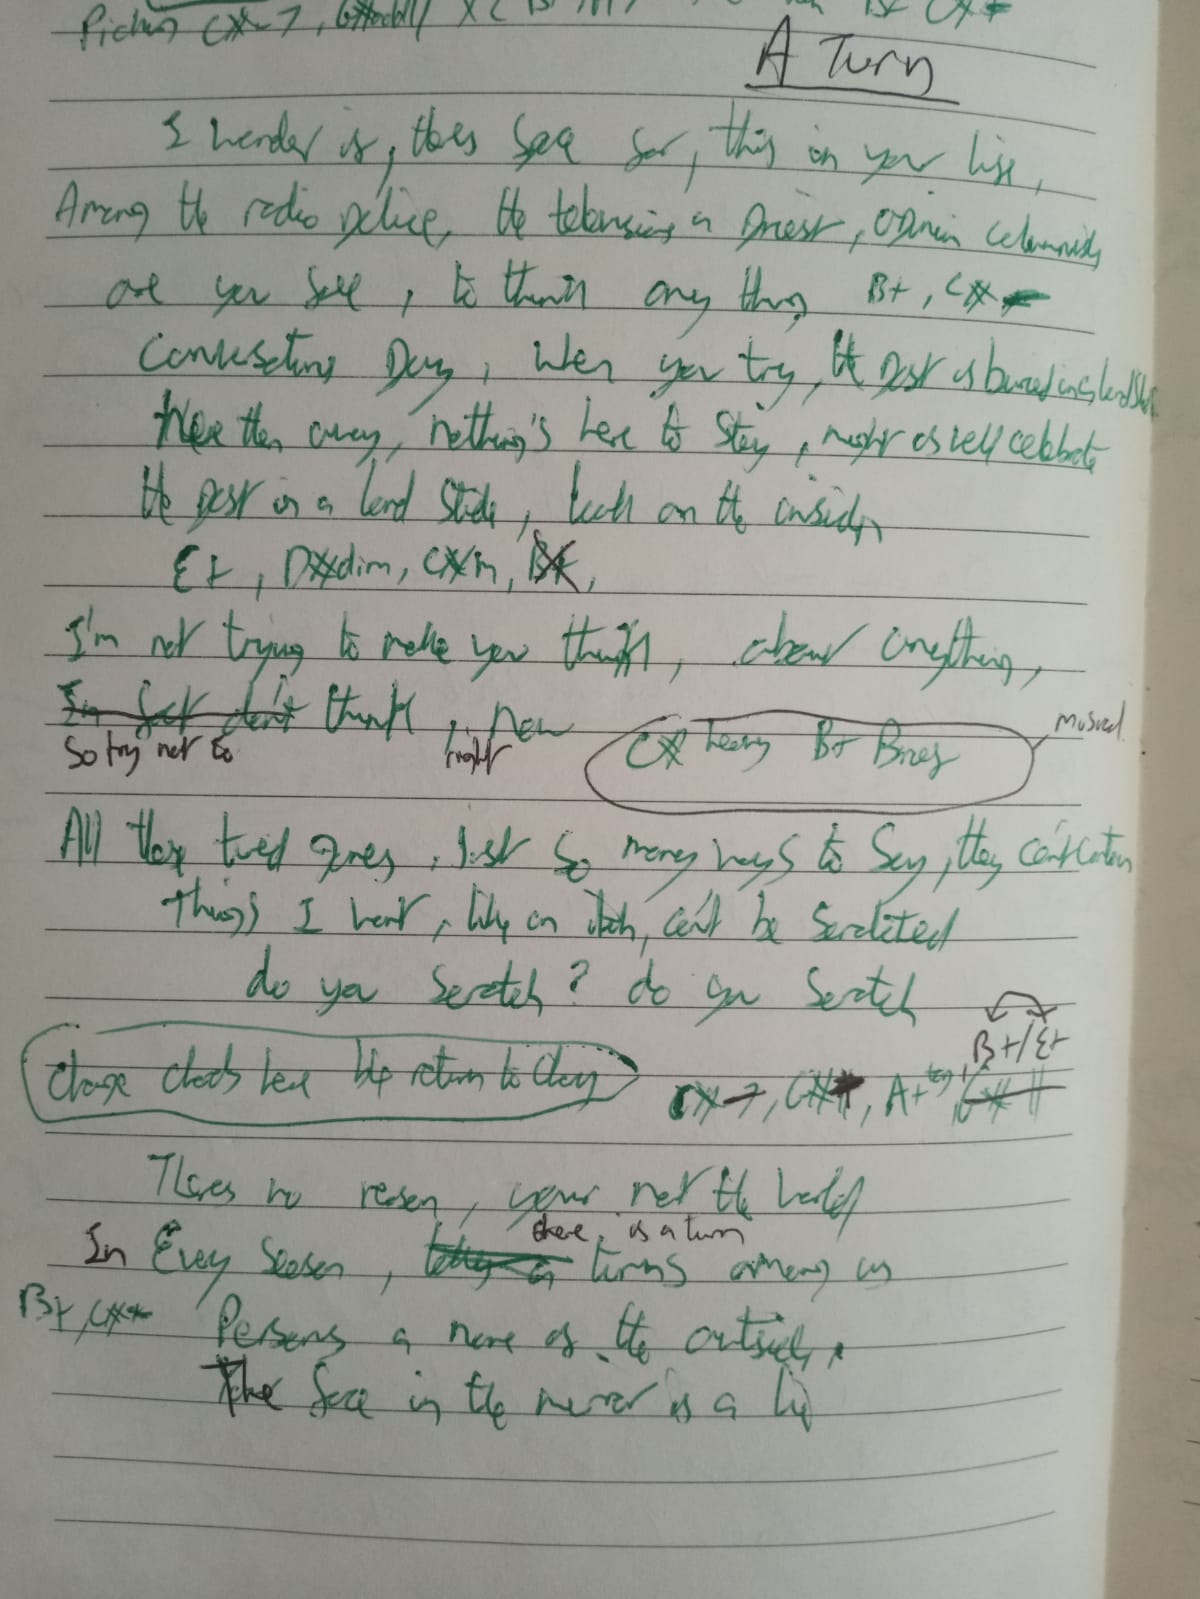 Picking C#-7,
A Turn
I wonder if, there's space for, this in your life,
Among the radio police, the television a priest, opinion columnists
are you safe, to think any thing B+, C#
day, when you try, the past is buried in a landslide
then away, nothing's here to stay, might as well celebrate
the past in a land slide, look on the inside
E+, D#dim, C#m, B+,
I'm not trying to make you think, about anything,
In fact don't think, now
So try not to right
C# heavy B+ musical
All these tired, Just so many ways to say, they can't contain
things I want, like an itch, can't be scratched
do you scratch? do you scratch
Change chords here return to
B+/E+
C#-7, G#, A+
There's no reason, your not the world
there is a turn
In Every season, turns among us
B+, C# Persons a name of the outside,
The face in the mirror is a lie